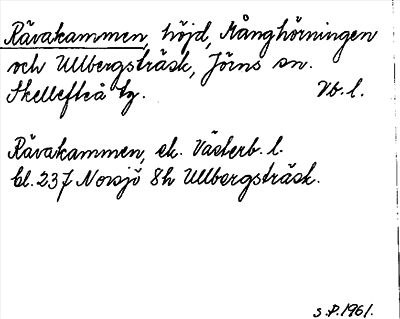 Rävakammen, höjd, Månghörningen
och Ullbergsträsk, Jörns sn.
Skellefteå tg. Vb. l.
Rävakammen, ek. Västerb. l.
bl. 237 Norsjö 8h Ullbergsträsk.
S.P. 1961.